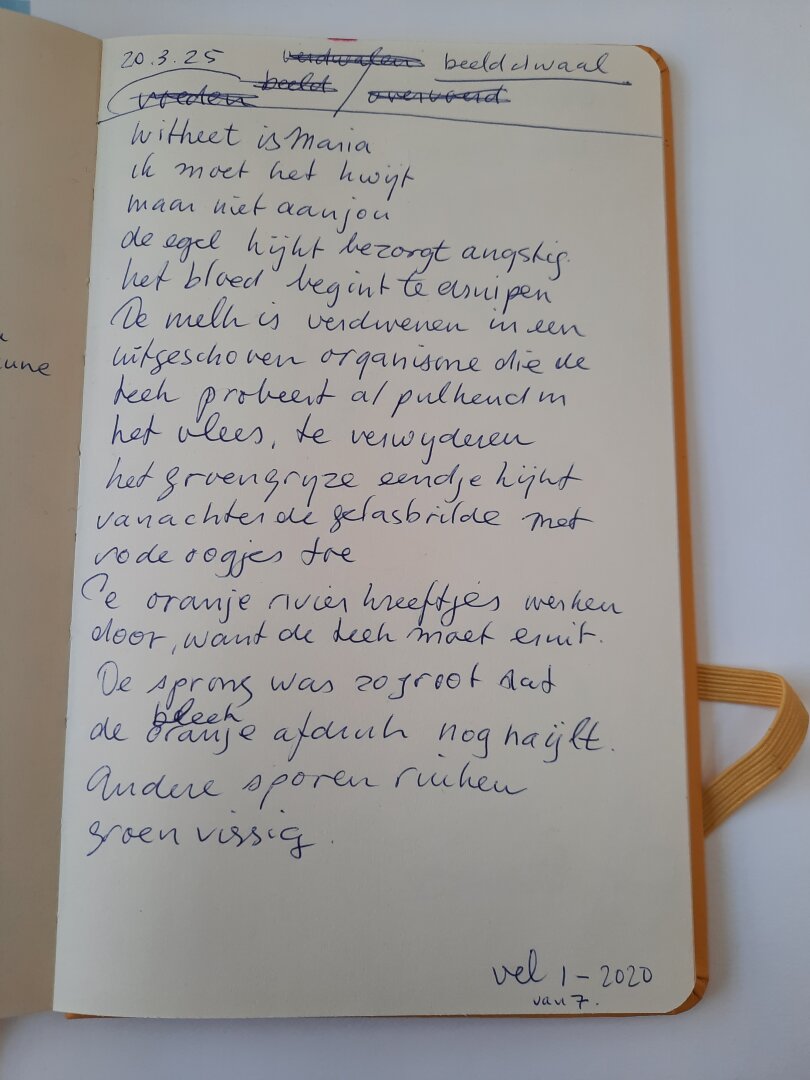 20.3.25 verdwalen beelddwaal
voeden beeld / overvoerd
Witheet is Maria
ik moet het kwijt
maar niet aan jou
de egel kijkt bezorgt angstig.
het bloed begint te druipen
De melk is verdwenen in een
uitgeschoven organisme die de
teek probeert al pulkend in
het vlees, te verwijderen
het groengrijze eendje kijkt
van achter de gelasbrilde met
rode oogjes toe
De oranje rivier kreeftjes werken
door, want de teek moet eruit.
De sprong was zo groot dat
bleek
de oranje afdruk nog na ijlt.
Andere sporen ruiken
groen vissig.
vel 1 - 2020
van 7.
une